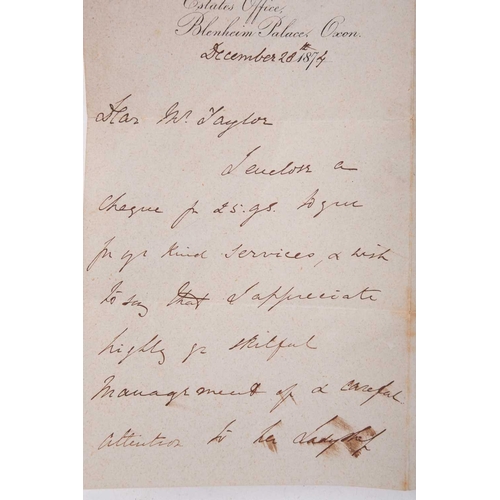 Estates Office,
Blenheim Palace, Oxon.
December 28th 1874
Dear Mr Taylor
I enclose a
cheque for 25.gs.
for yr kind services, & wish
to say that I appreciate
highly yr skilful
management of & careful
attention to her Ladyship